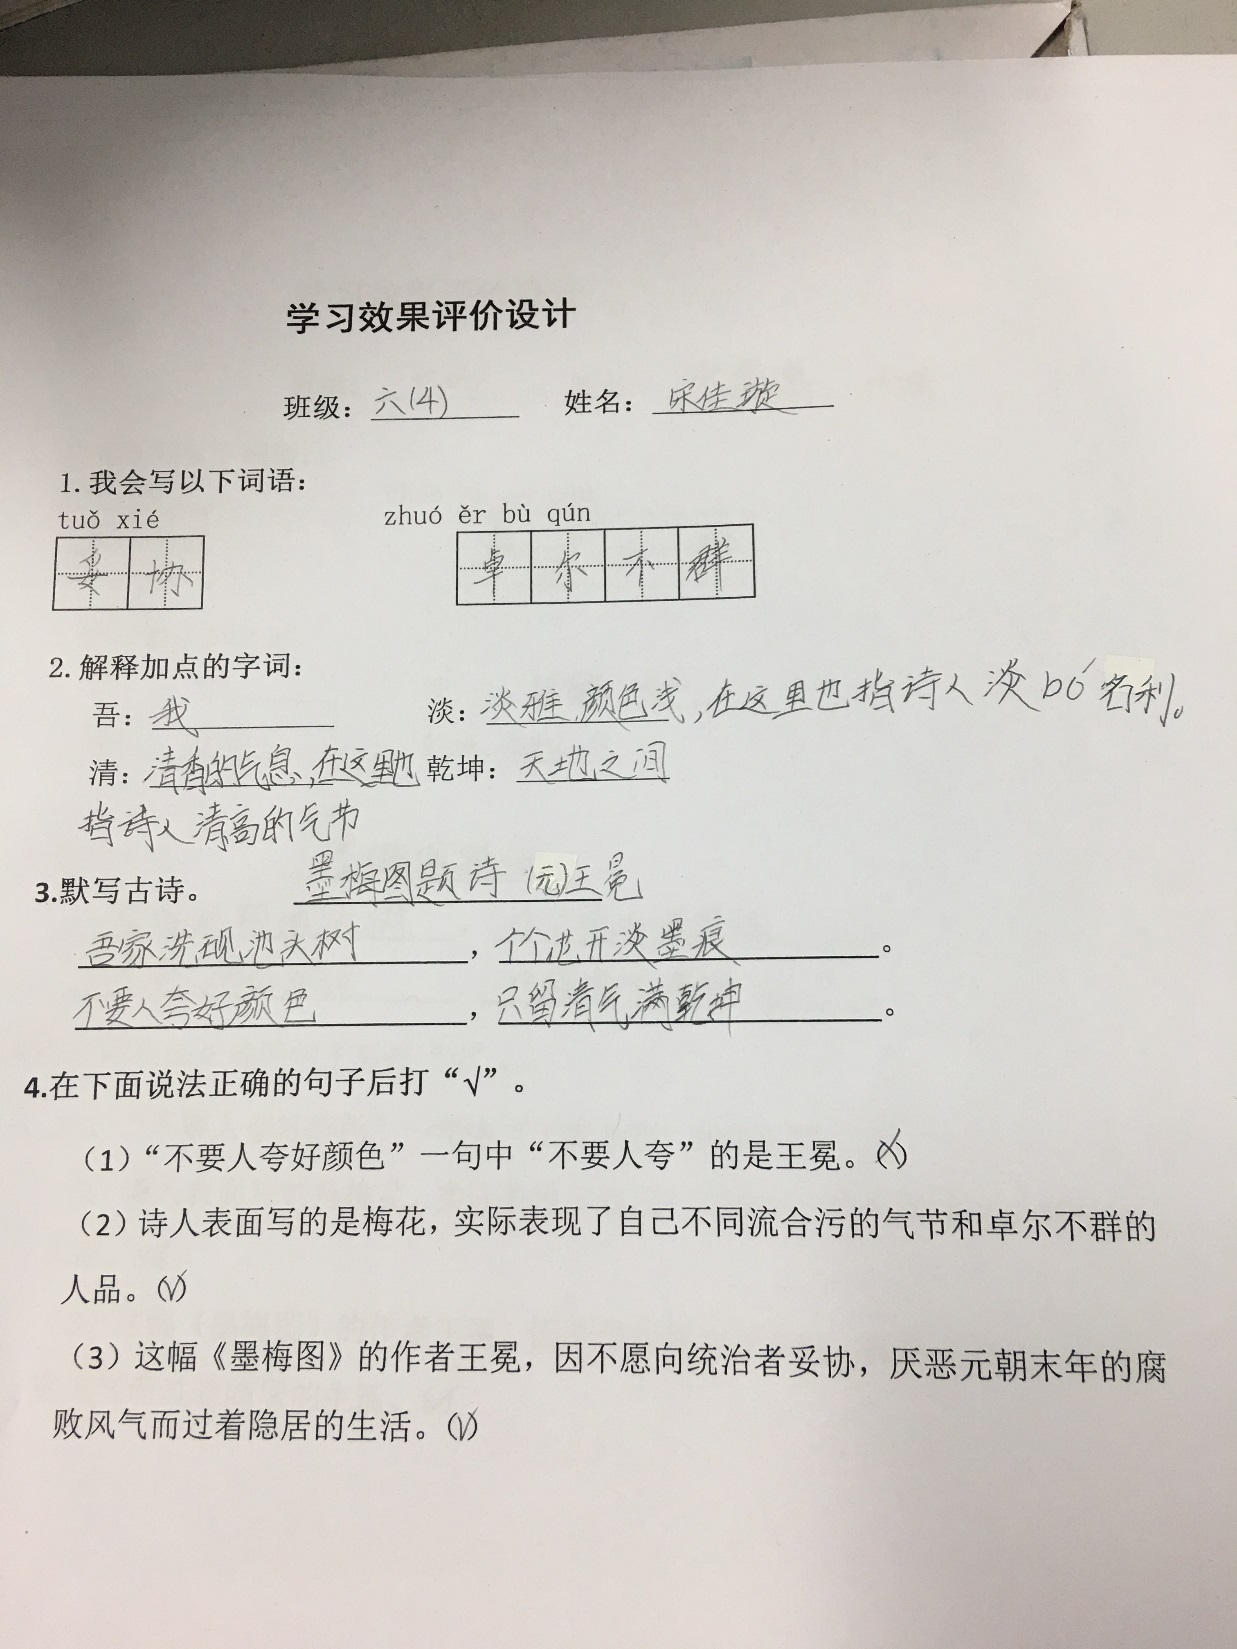 学习效果评价设计
班级：六(4) 姓名：宋佳璇
1.我会写以下词语：
tuǒ xié zhuó ěr bù qún
妥协 卓尔不群
2.解释加点的字词：
吾：我 淡：淡雅，颜色浅，在这里也指诗人淡bó名利。
清：清香的气息，在这里也 乾坤：天地之间
指诗人清高的气节
3.默写古诗。 墨梅图题诗 (元)王冕
吾家洗砚池头树，个个花开淡墨痕。
不要人夸好颜色，只留清气满乾坤。
4.在下面说法正确的句子后打“√”。
（1）“不要人夸好颜色”一句中“不要人夸”的是王冕。(X)
（2）诗人表面写的是梅花，实际表现了自己不同流合污的气节和卓尔不群的
人品。(√)
（3）这幅《墨梅图》的作者王冕，因不愿向统治者妥协，厌恶元朝末年的腐
败风气而过着隐居的生活。(√)